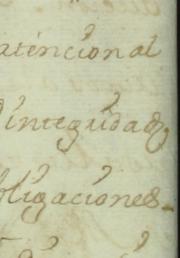 atencion al
integridad
bligaciones